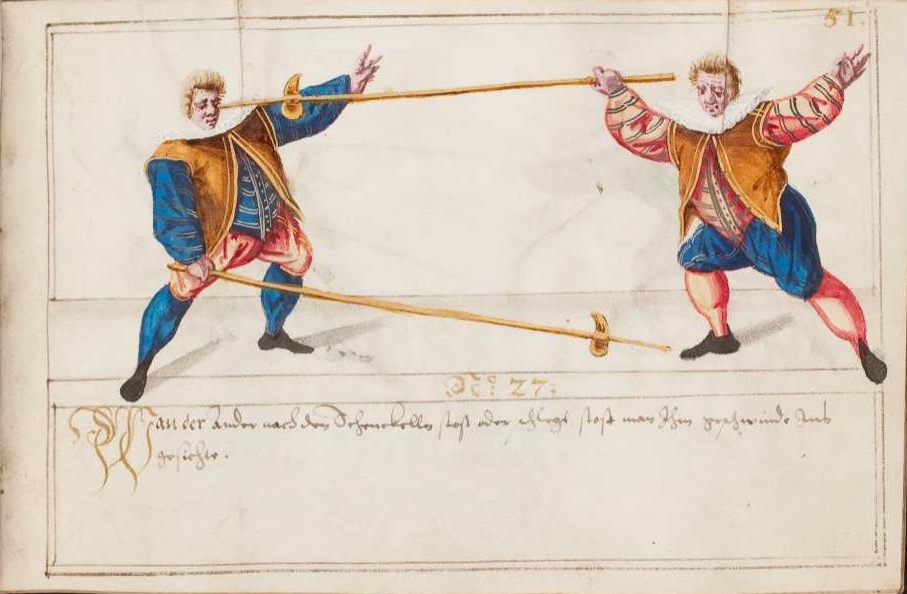 51.
No: 27:
Wan der Ander nach den Schenckelln stost oder schlegt stost man Ihm geschwinde Ins
gesichte.